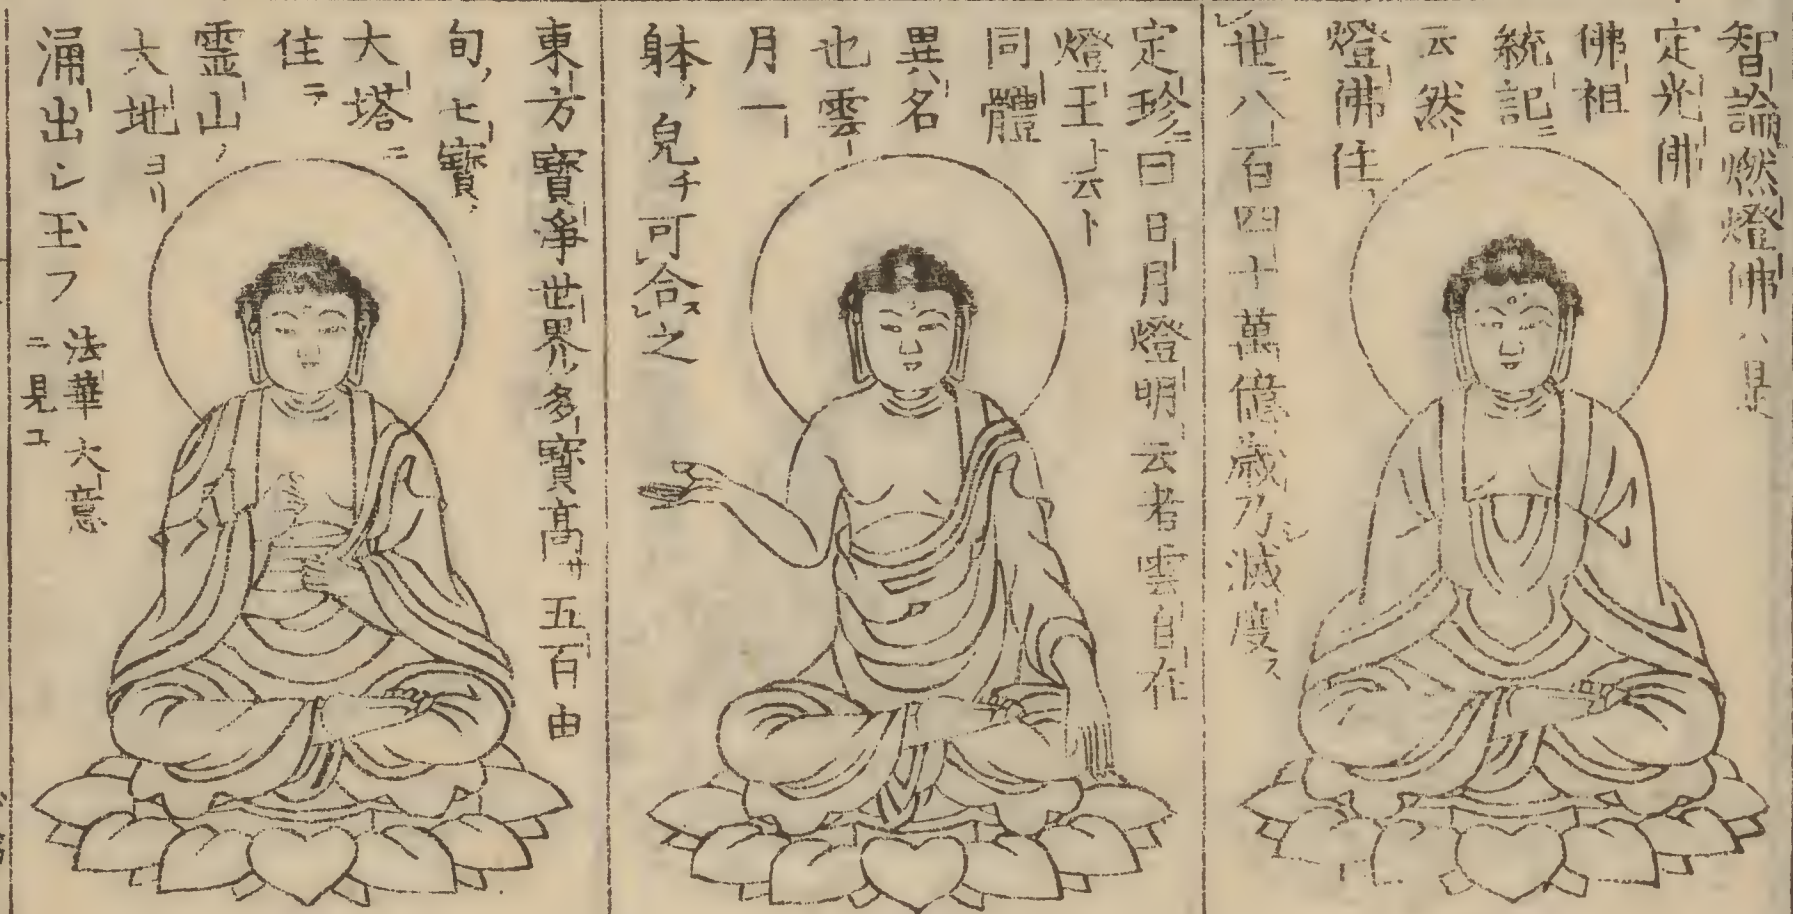 智論燃燈佛ハ是
定光佛
佛祖
統記ニ
云然
燈佛住
世八百四十萬億歳乃滅度ス
定珍曰日月燈明云者雲自在
燈王ト云ト
同體
異名
也雲
月一
躰ノ皃チ可合ス之
東方寶淨世界多寶高サ五百由
旬ノ七寶ノ
大塔ニ
住ニテ
霊山ノ
大地ヨリ
涌出シ玉フ
法華大意
ニ見ユ